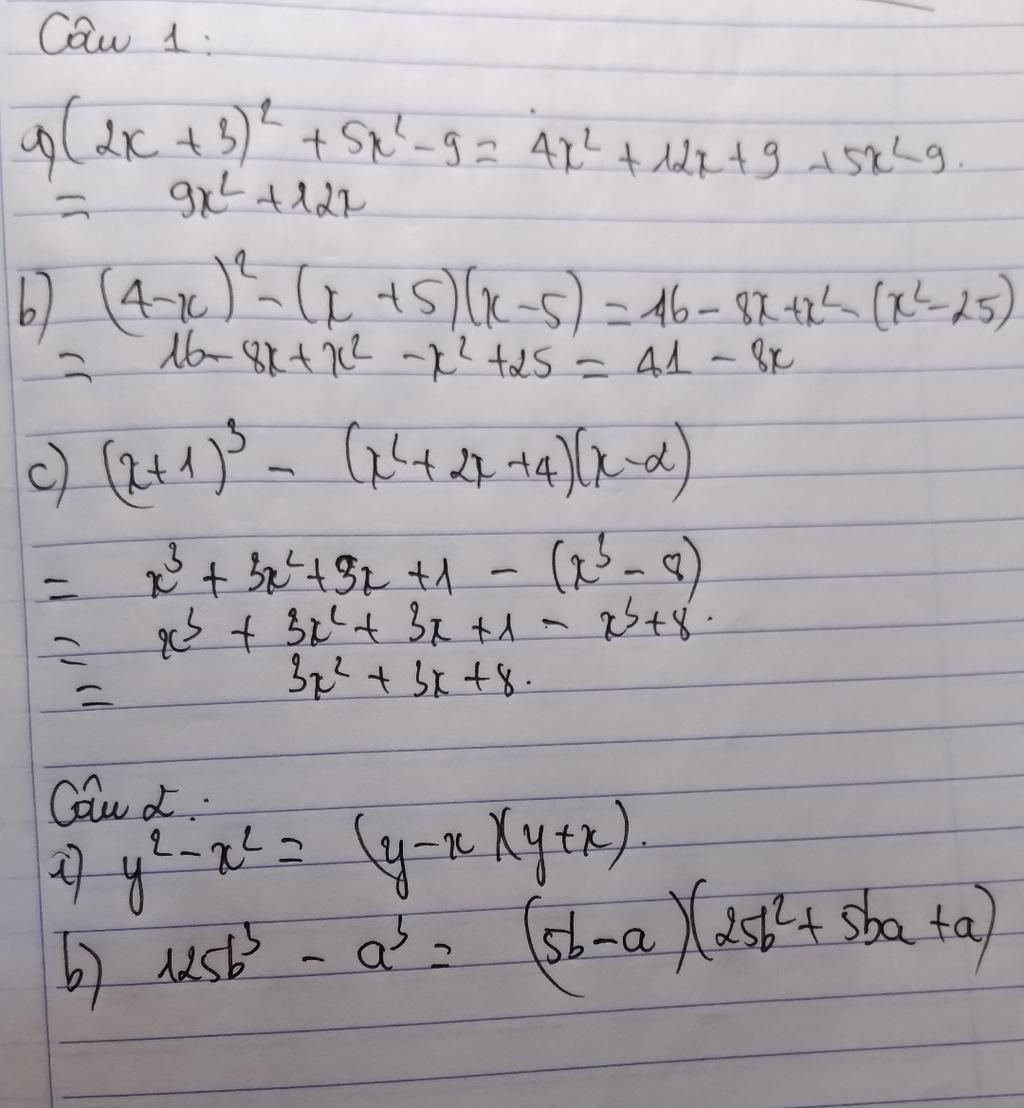 Câu 1:
a) (2x + 3)² + 5x² - 9 = 4x² + 12x + 9 + 5x² - 9.
= 9x² + 12x
b) (4 - x)² - (x + 5)(x - 5) = 16 - 8x + x² - (x² - 25)
= 16 - 8x + x² - x² + 25 = 41 - 8x
c) (x + 1)³ - (x² + 2x + 4)(x - 2)
= x³ + 3x² + 3x + 1 - (x³ - 8)
= x³ + 3x² + 3x + 1 - x³ + 8.
= 3x² + 3x + 8.
Câu 2:
a) y² - x² = (y - x)(y + x).
b) 125b³ - a³ = (5b - a)(25b² + 5ba + a)